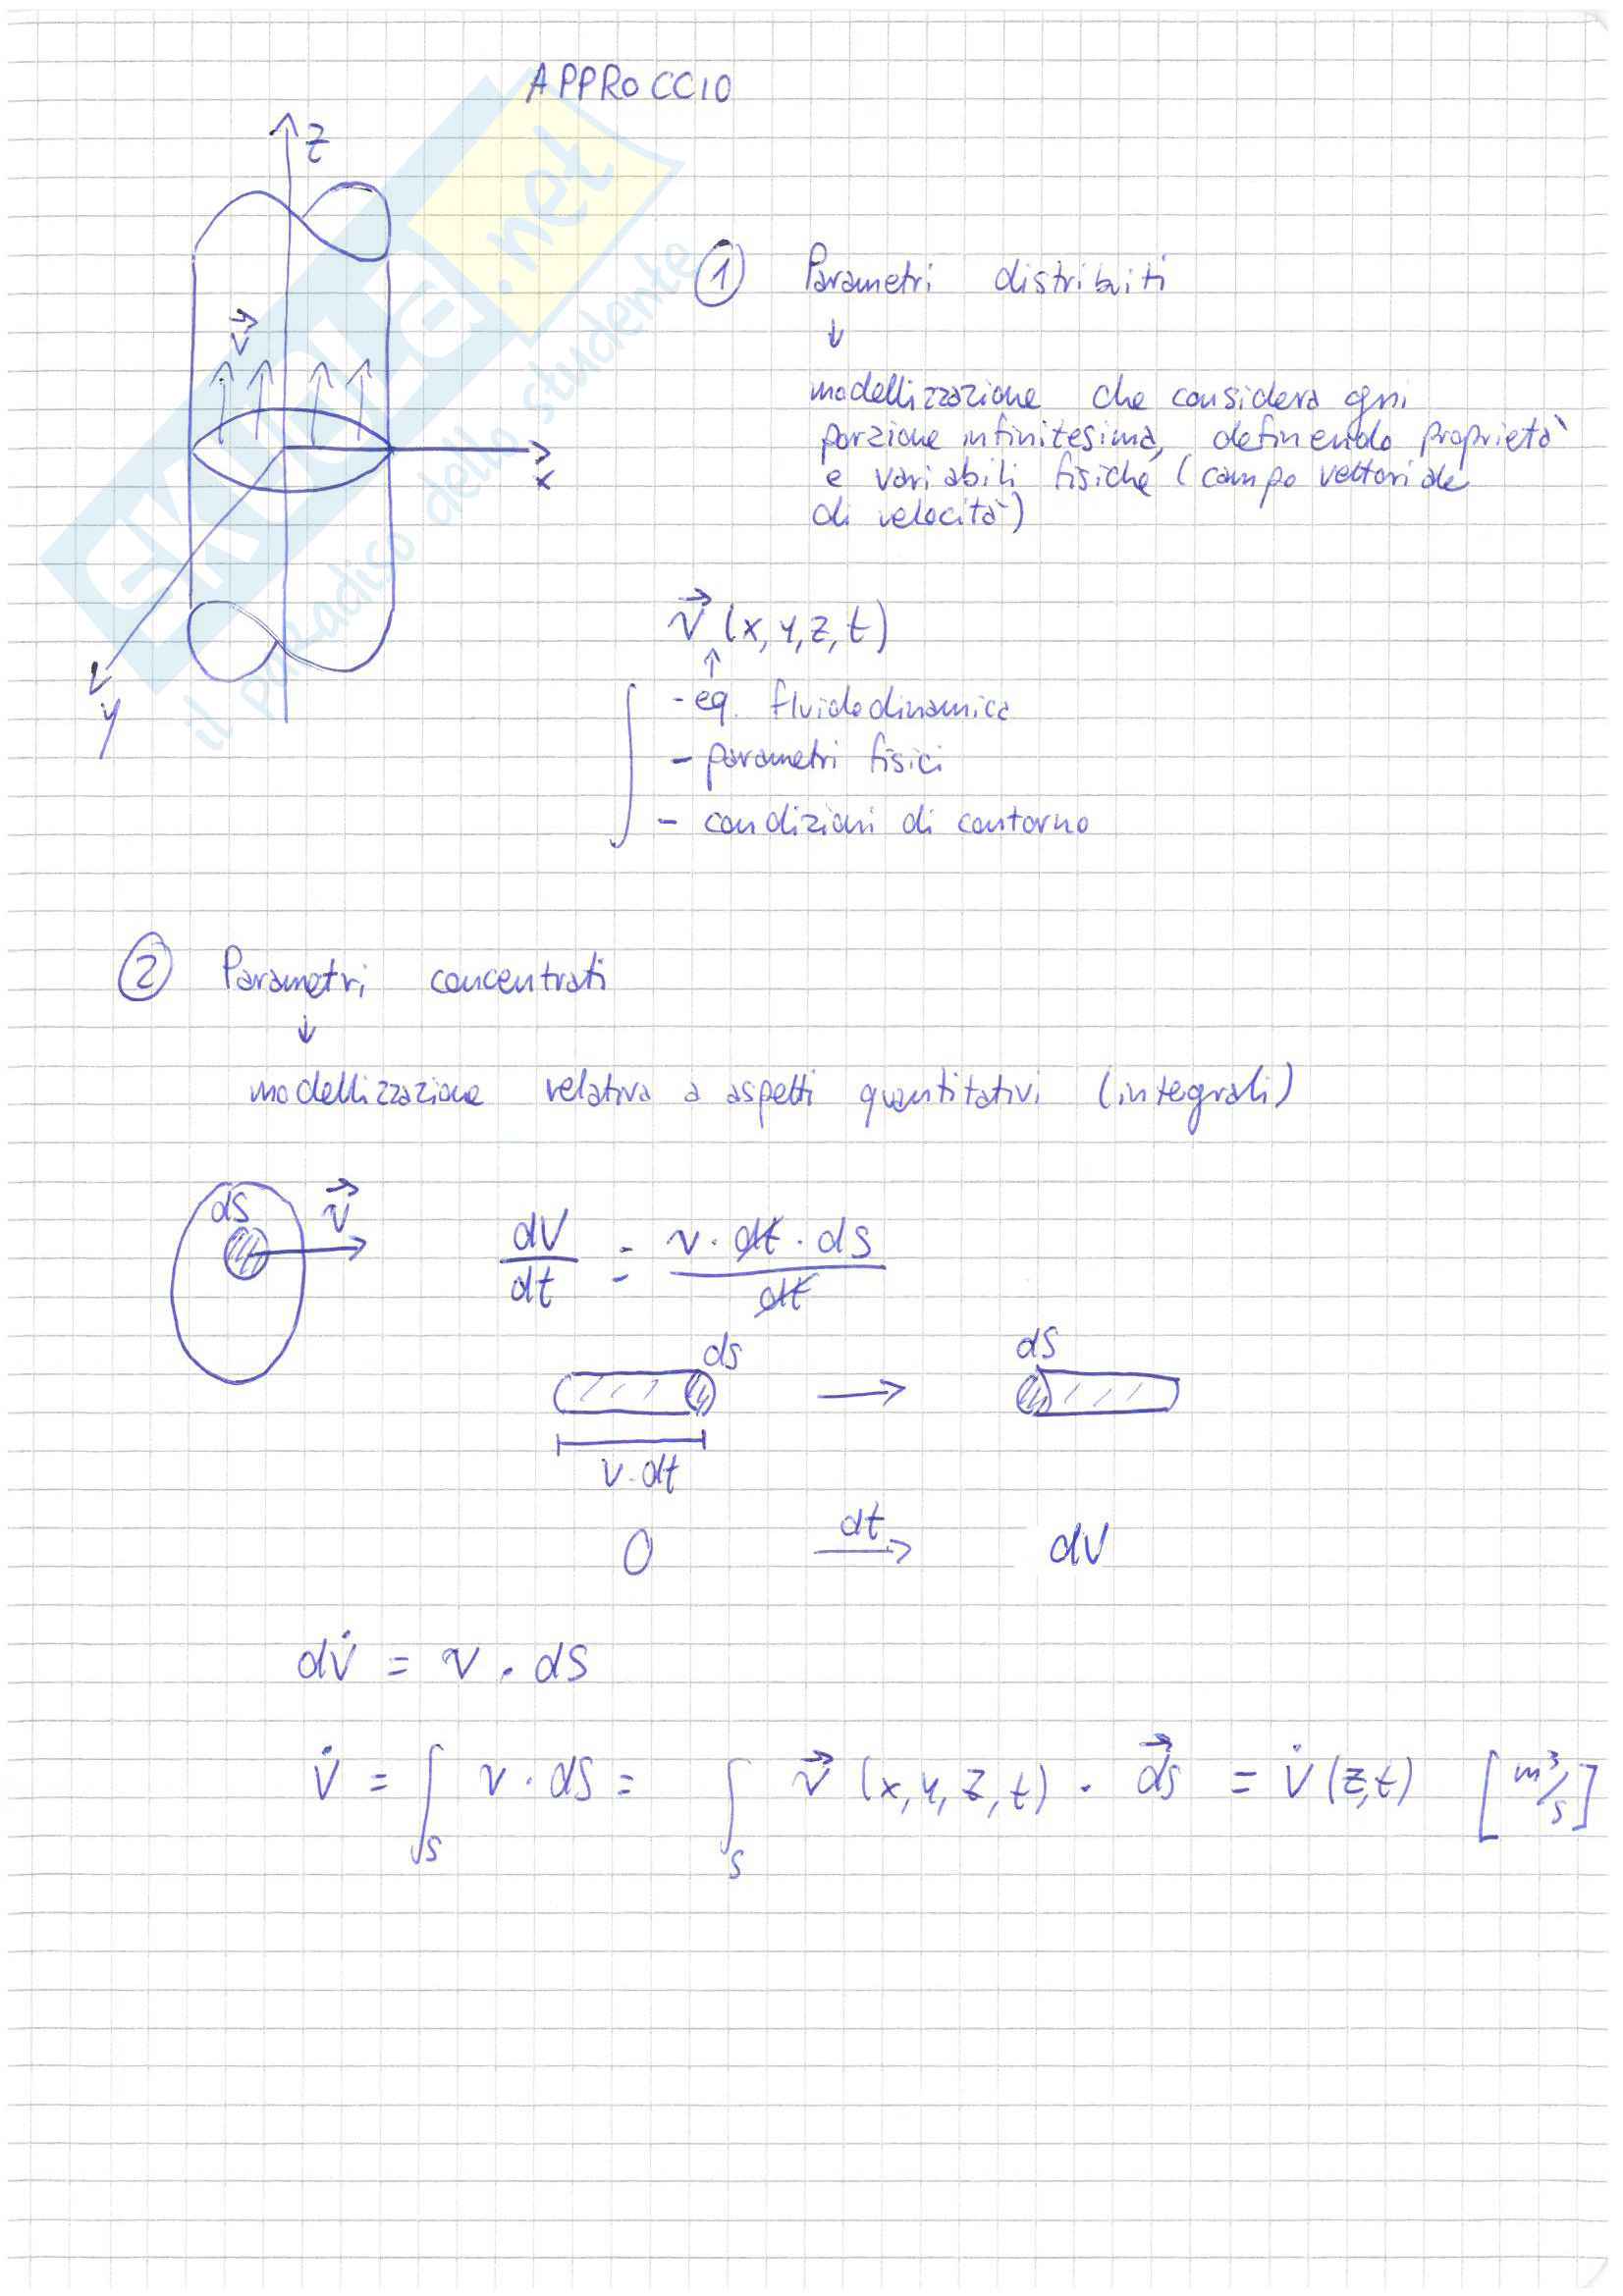 APPROCCIO
z
① Parametri distribuiti
↓
v⃗
modellizzazione che considera ogni
porzione infinitesima, definendo proprietà
x
e variabili fisiche (campo vettoriale
di velocità)
v⃗ (x, y, z, t)
↑
y
- eq. fluidodinamica
- parametri fisici
- condizioni di contorno
② Parametri concentrati
↓
modellizzazione relativa a aspetti quantitativi (integrali)
dS v⃗
dV/dt = v · dt · dS / dt
dS → dS
v · dt
0 dt→ dV
dV̇ = v · dS
V̇ = ∫S v · dS = ∫S v⃗ (x, y, z, t) · dS⃗ = V̇ (z,t) [m³/s]
SKUOLA.net
il paradiso dello studente